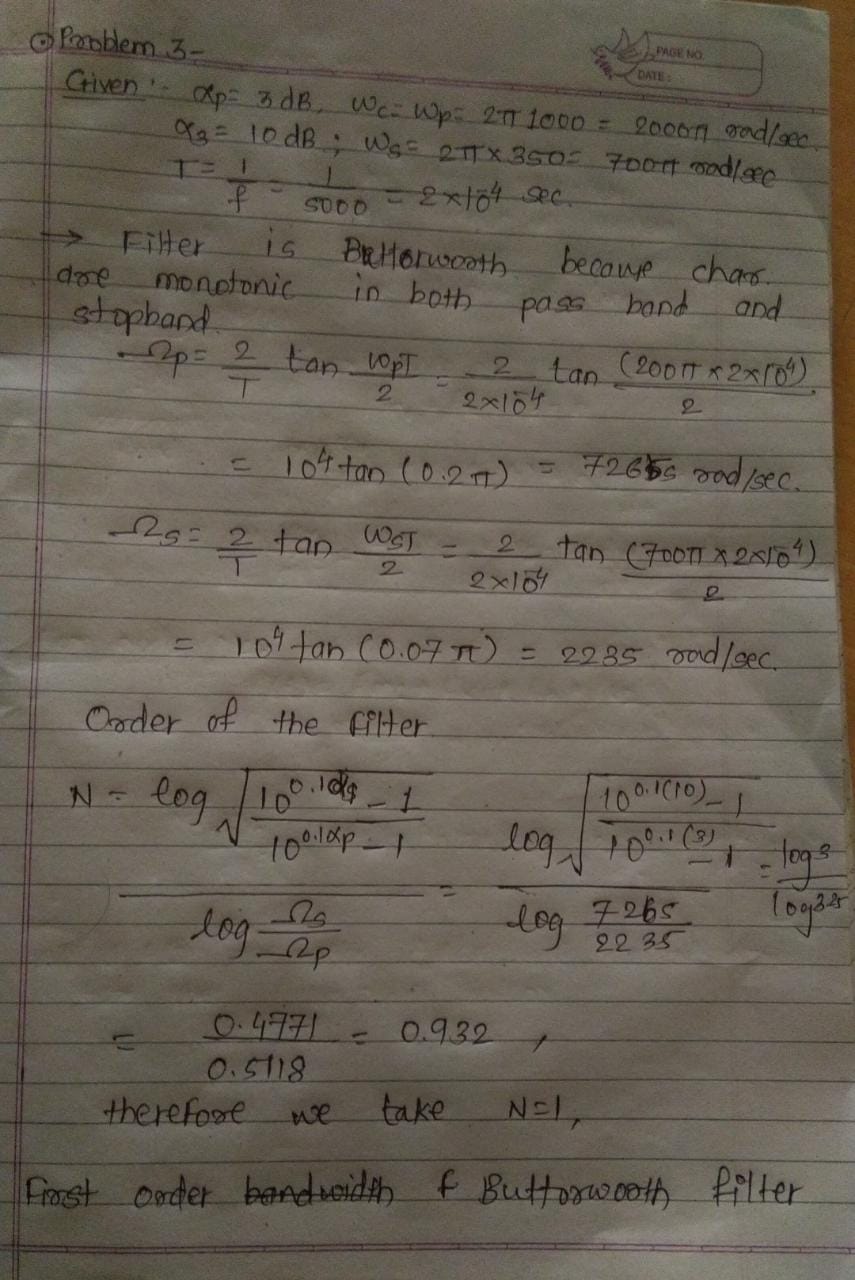 Problem 3-
PAGE NO.
DATE:
Given :- αp = 3 dB, ωc = ωp = 2π 1000 = 2000π rad/sec.
αs = 10 dB ; ωs = 2π × 350 = 700π rad/sec
T = 1/f = 1/5000 = 2×10⁻⁴ sec.
→ Filter is Butterworth because char.
are monotonic in both pass band and
stopband.
Ωp = 2/T tan ωpT/2 = 2/2×10⁻⁴ tan (200π × 2×10⁻⁴)/2
= 10⁴ tan (0.2π) = 7265 rad/sec.
Ωs = 2/T tan ωsT/2 = 2/2×10⁻⁴ tan (700π × 2×10⁻⁴)/2
= 10⁴ tan (0.07π) = 2235 rad/sec.
Order of the filter
N = log √(10^0.1αs - 1 / 10^0.1αp - 1) / log Ωs/Ωp = log √(10^0.1(10) - 1 / 10^0.1(3) - 1) / log 7265/2235 = log 3 / log 3.25
= 0.4771/0.5118 = 0.932 ,
therefore we take N=1,
First order bandwidth f Butterworth filter